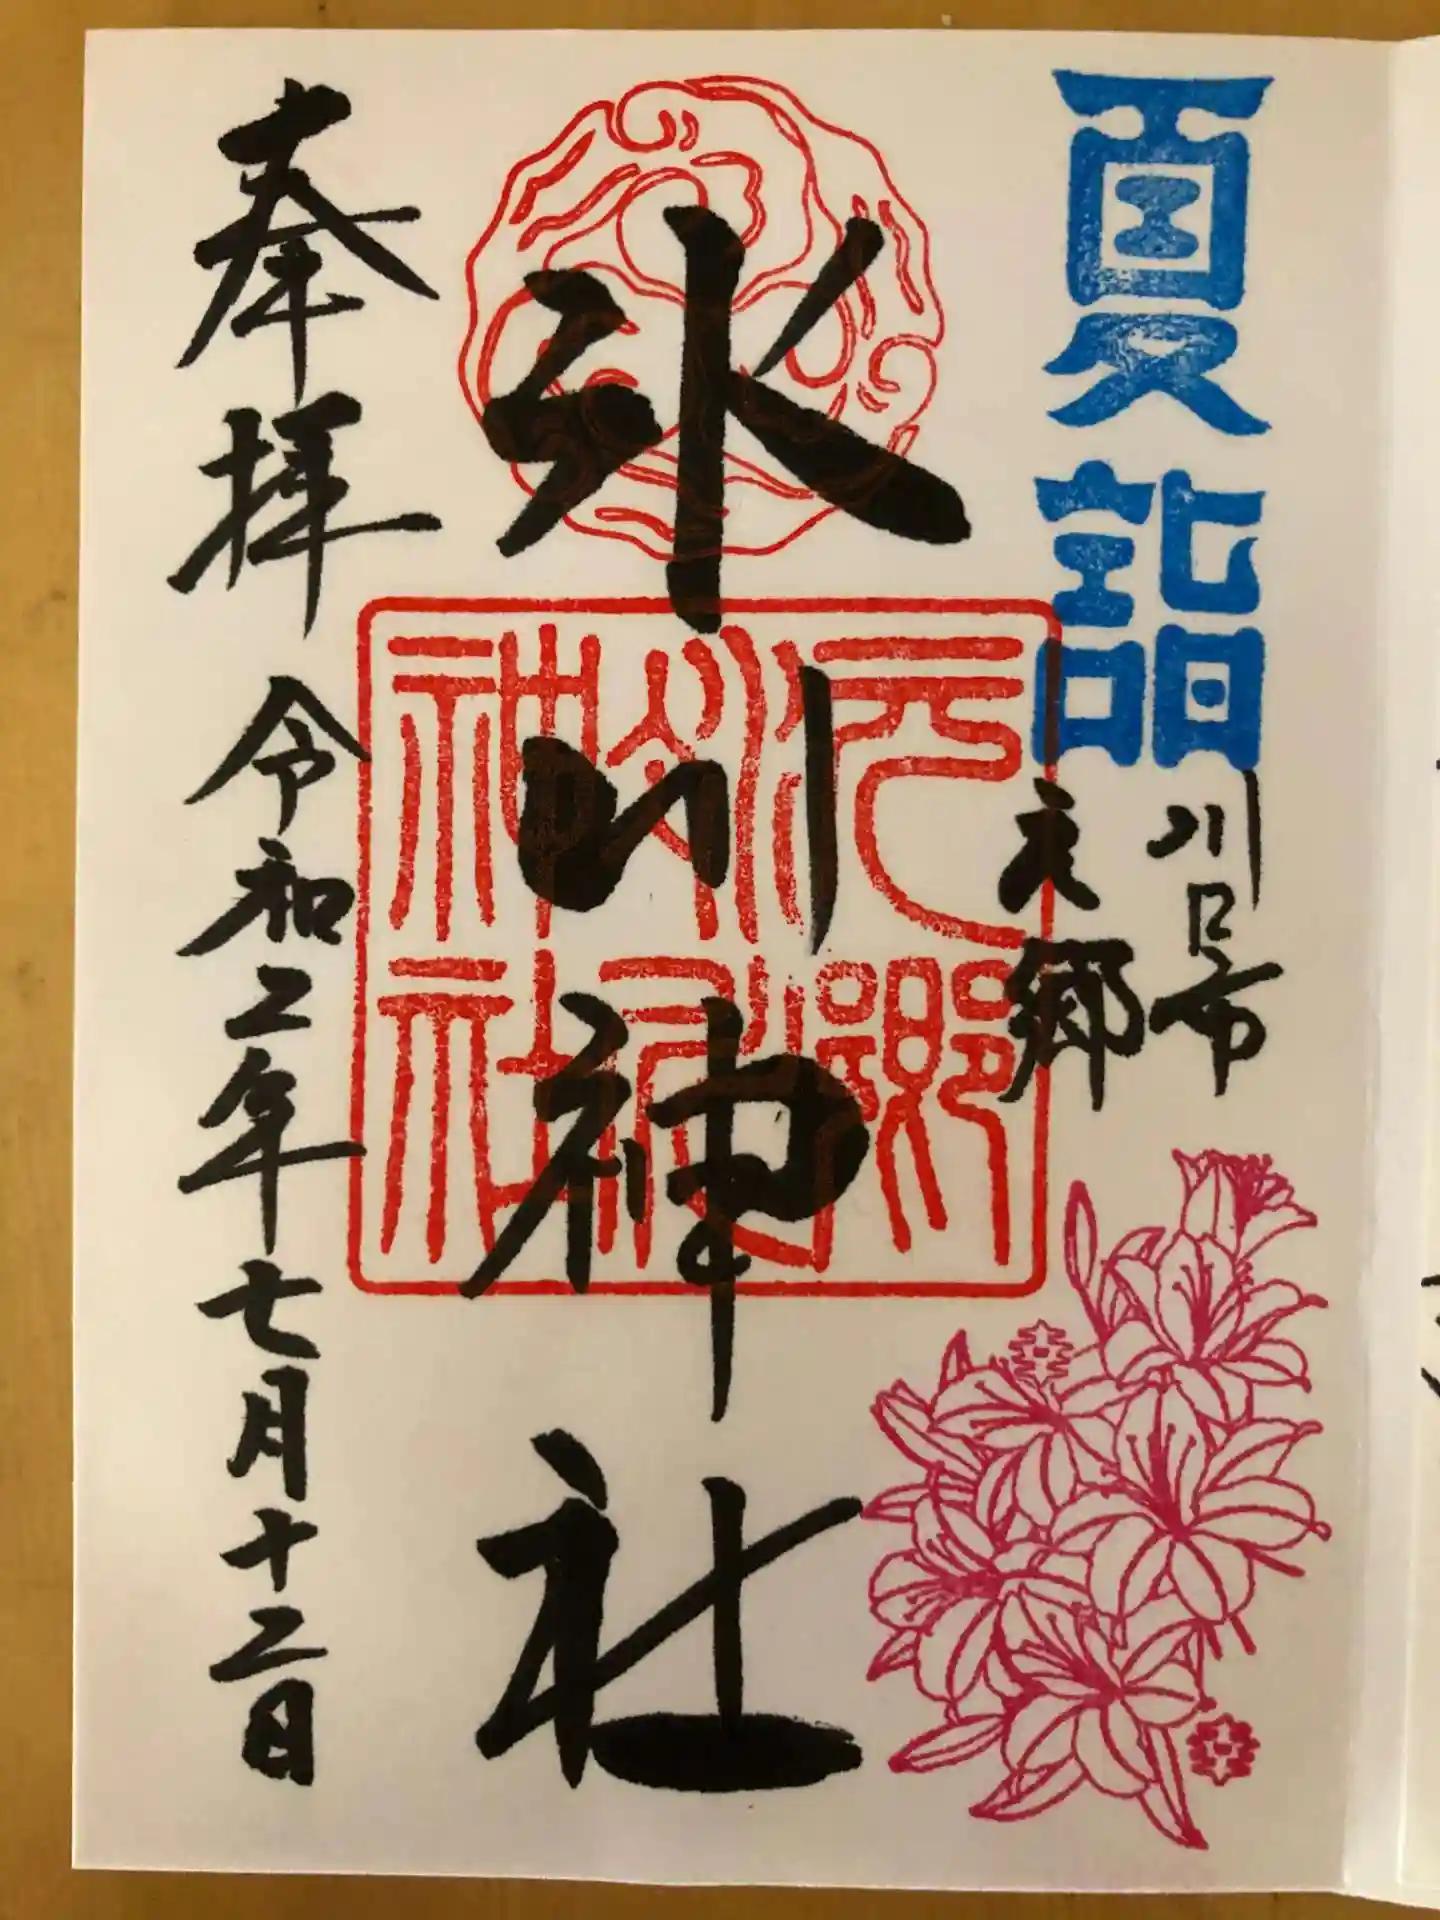 夏詣
川口市
元郷
氷川神社
元郷
氷川神社
奉拝
令和二年七月十二日